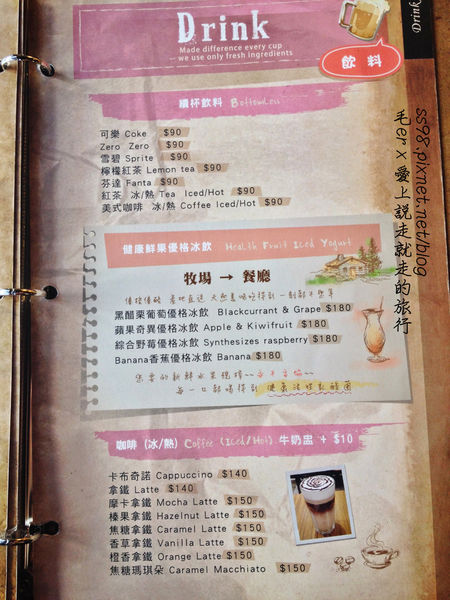 Drink
Made difference every cup
we use only fresh ingredients
飲料
Drink
續杯飲料 Bottomless
可樂 Coke $90
Zero Zero $90
雪碧 Sprite $90
檸檬紅茶 Lemon tea $90
芬達 Fanta $90
紅茶 冰/熱 Tea Iced/Hot $90
美式咖啡 冰/熱 Coffee Iced/Hot $90
健康鮮果優格冰飲 Health Fruit Iced Yogurt
牧場 → 餐廳
黑醋栗葡萄優格冰飲 Blackcurrant & Grape $180
蘋果奇異優格冰飲 Apple & Kiwifruit $180
綜合野莓優格冰飲 Synthesizes raspberry $180
Banana香蕉優格冰飲 Banana $180
咖啡 (冰/熱) Coffee (Iced/Hot) 牛奶盅 + $10
卡布奇諾 Cappuccino $140
拿鐵 Latte $140
摩卡拿鐵 Mocha Latte $150
榛果拿鐵 Hazelnut Latte $150
焦糖拿鐵 Caramel Latte $150
香草拿鐵 Vanilla Latte $150
橙香拿鐵 Orange Latte $150
焦糖瑪琪朵 Caramel Macchiato $150
ss98.pixnet.net/blog
毛er x 愛上說走就走的旅行